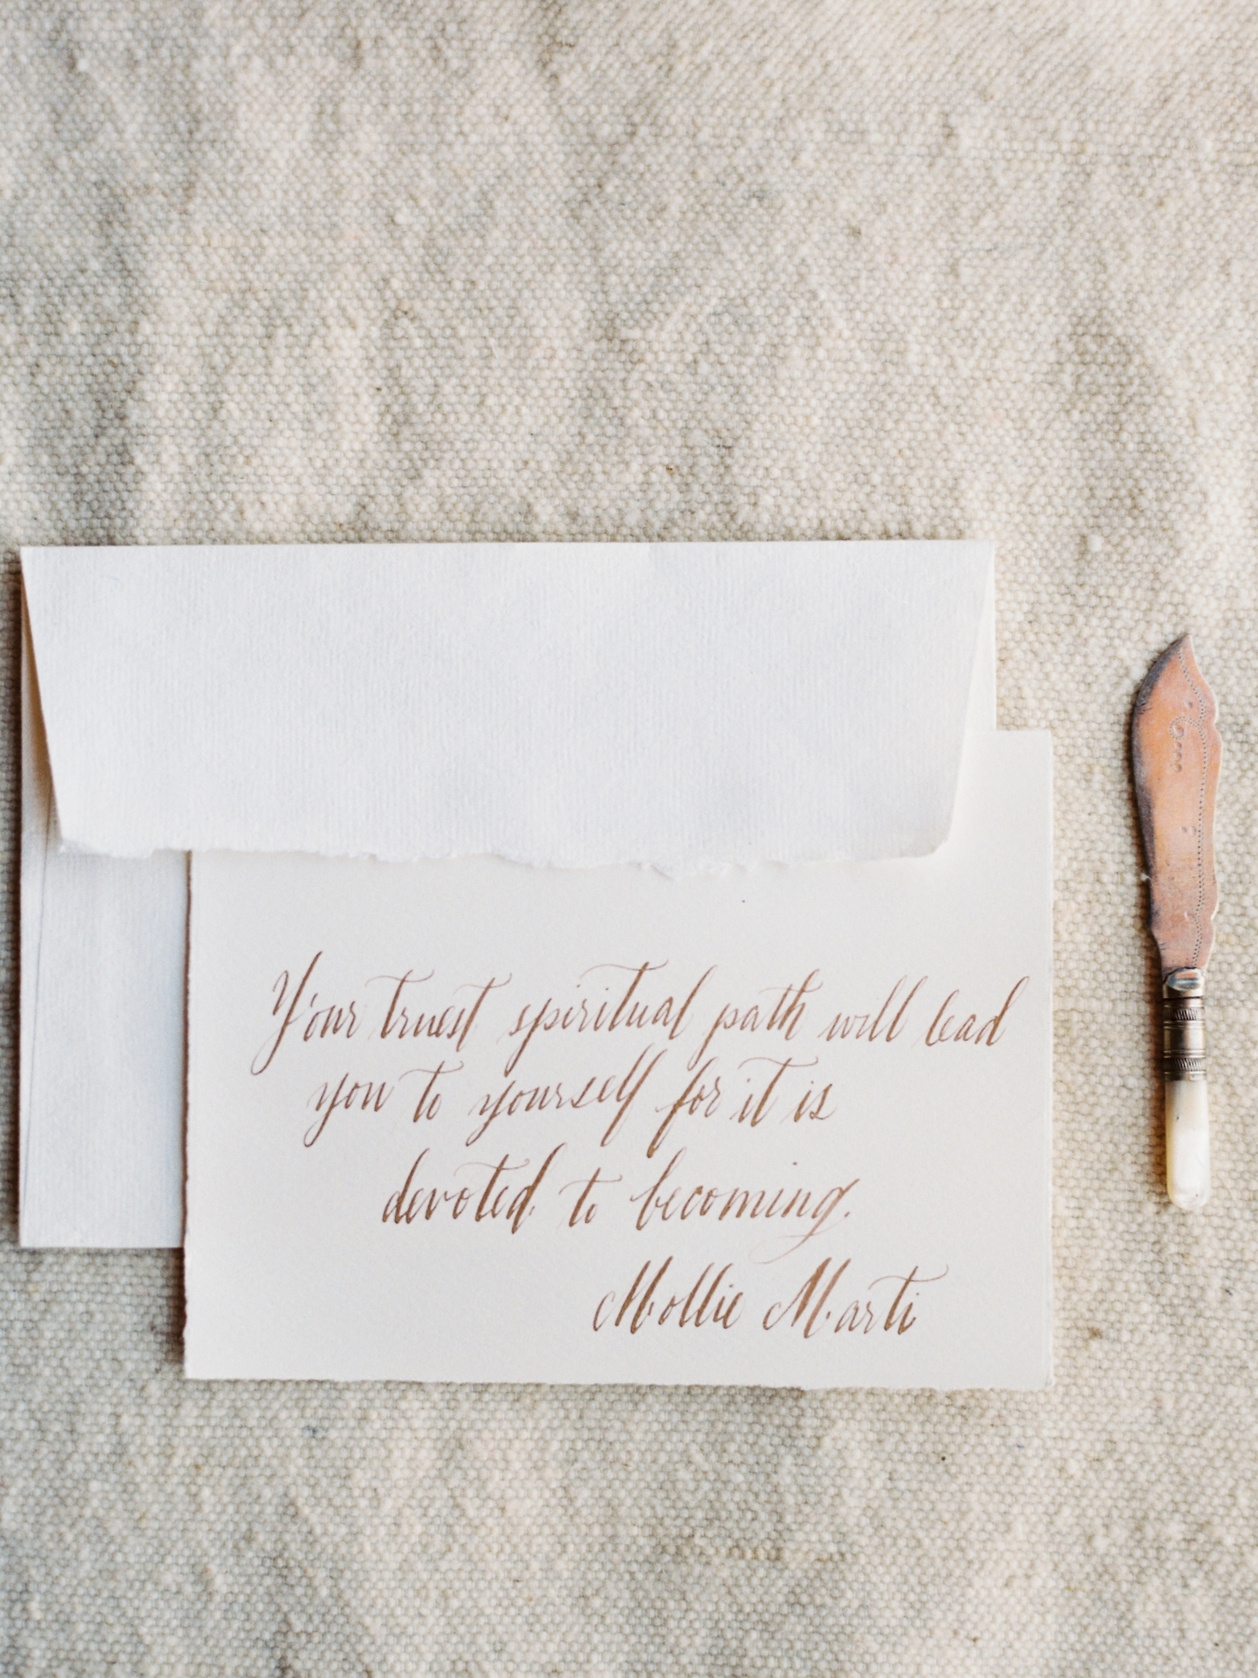 Your truest spiritual path will lead
you to yourself for it is
devoted to becoming.
Mollie Marti